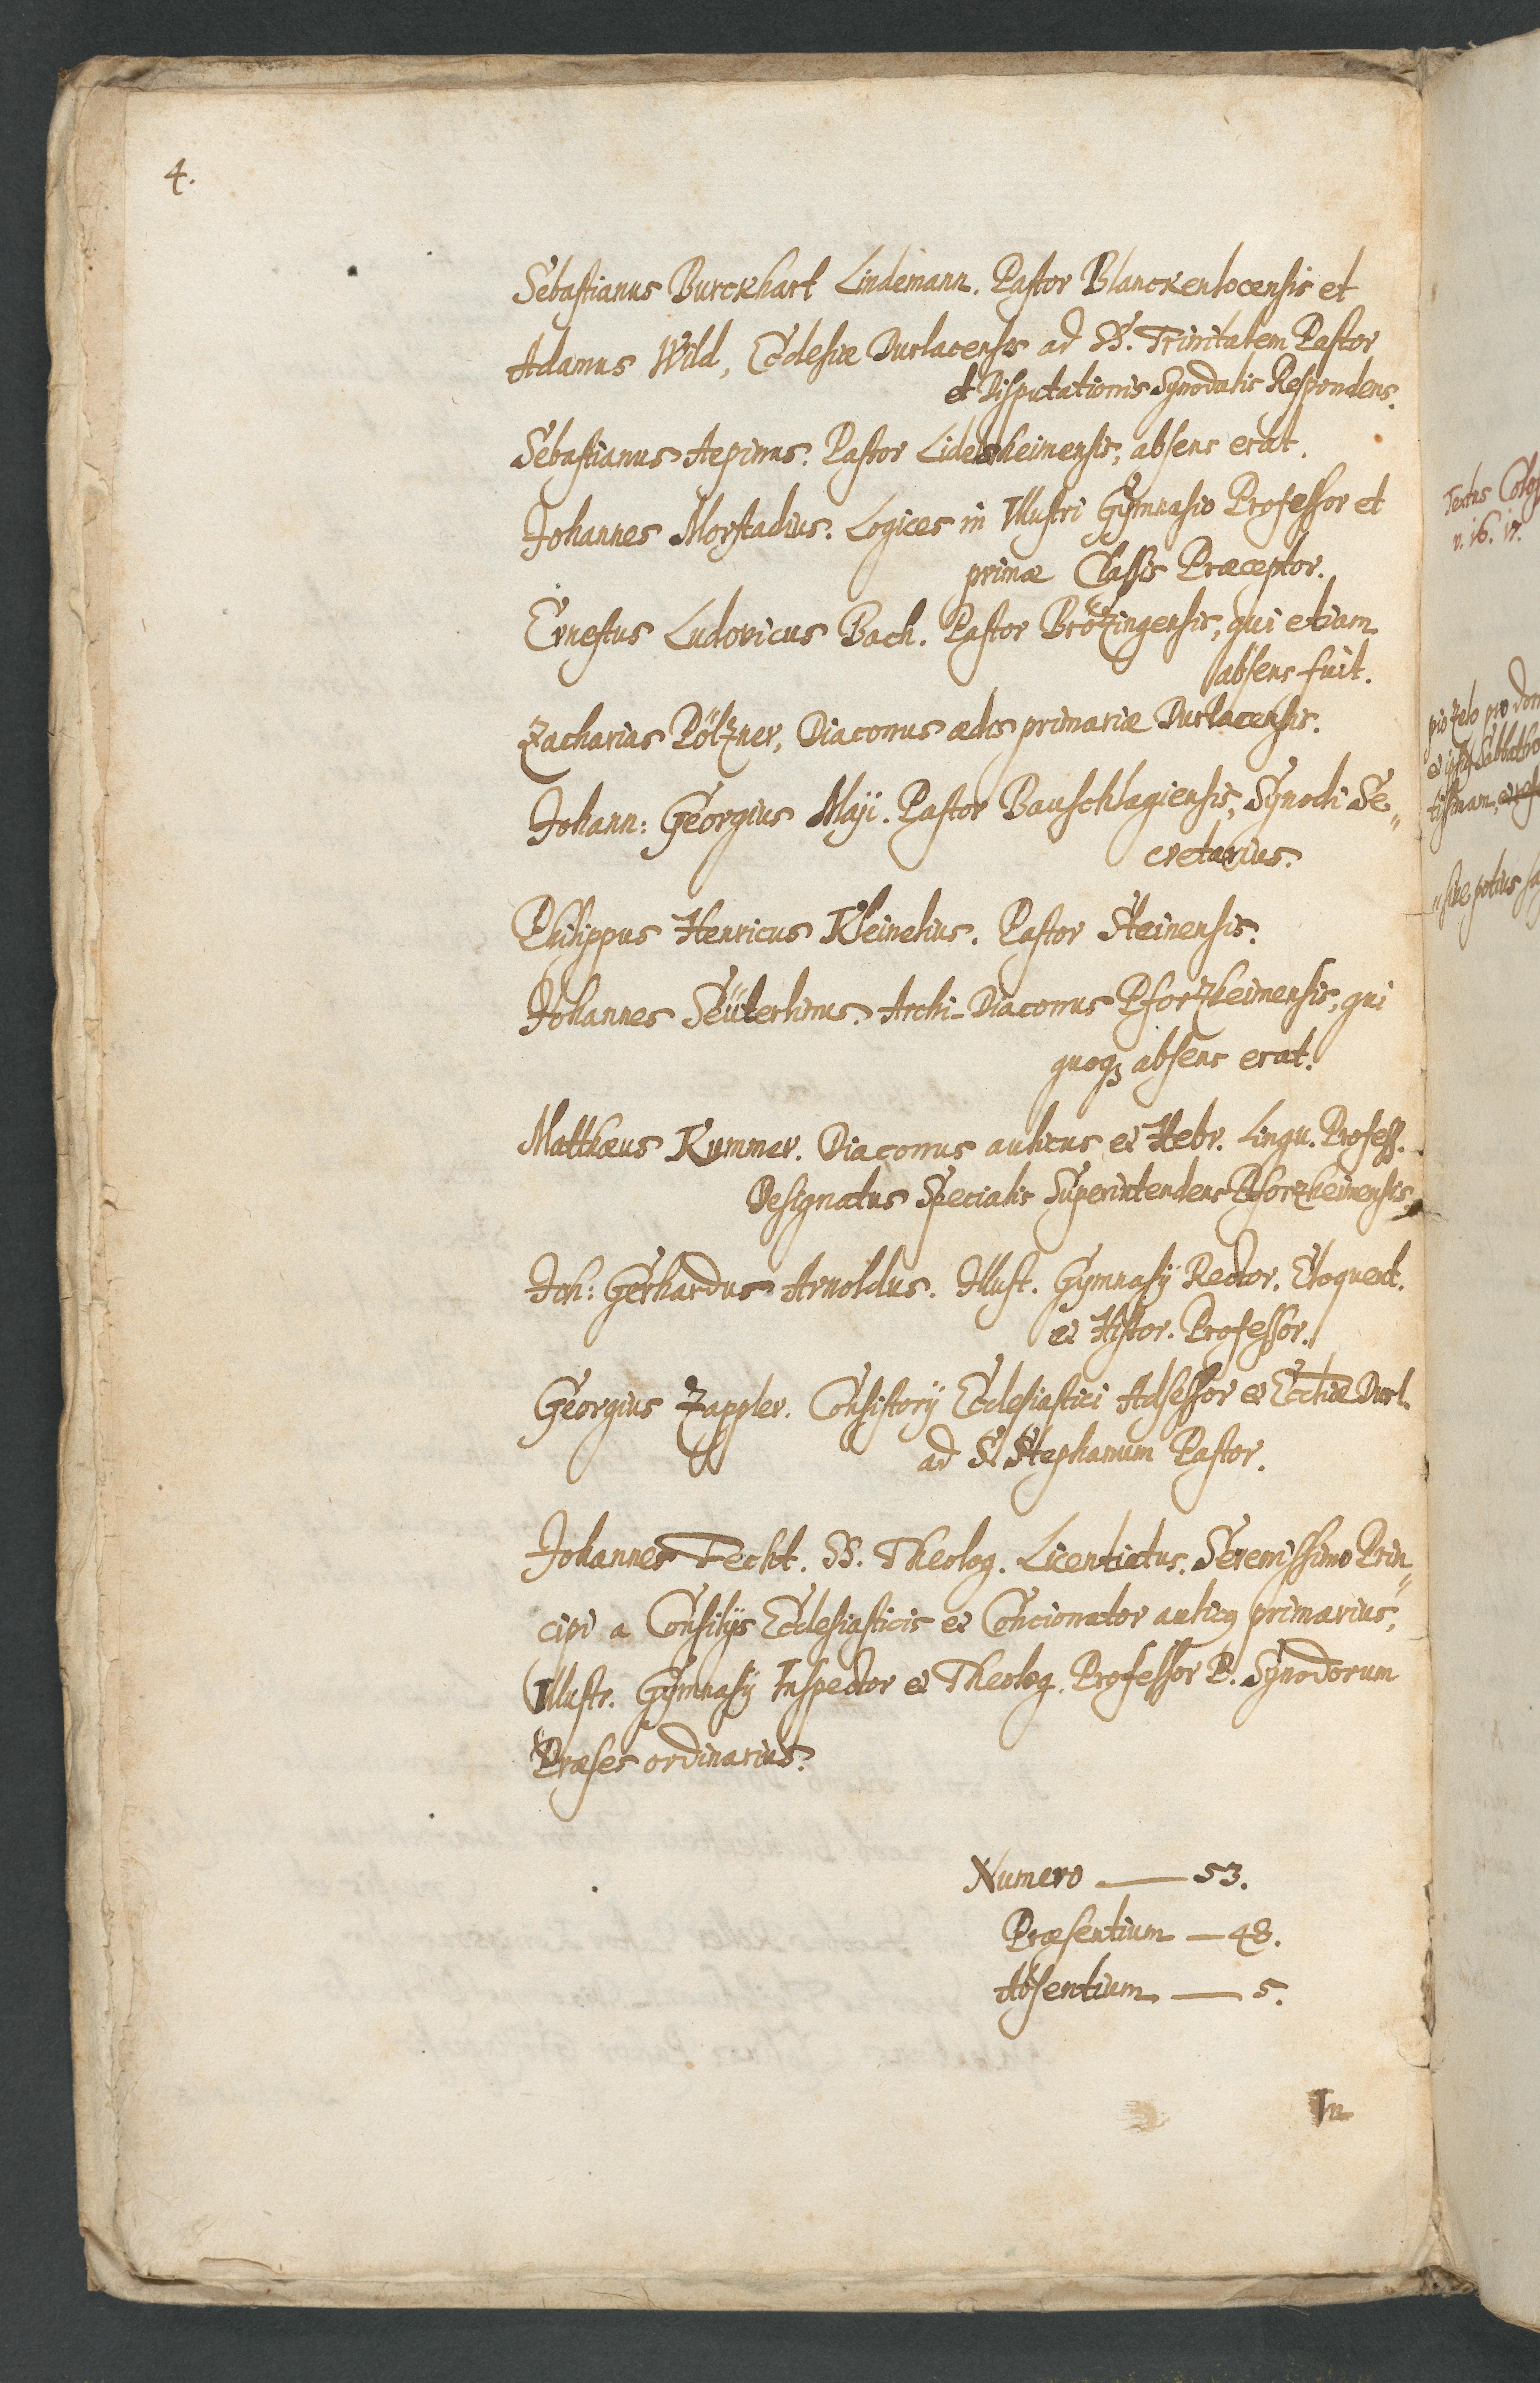 4.
Sebastianus Burckhart Lindemann. Pastor Blanckenlocensis et
Adamus Wild, Ecclesiæ Durlacensis ad SS. Trinitatem Pastor
et Disputationis Synodalis Respondens.
Sebastianus Aepinus. Pastor Lidelsheimensis, absens erat.
Johannes Morstadius. Logices in Illustri Gÿmnasio Professor et
primæ Classis Præceptor.
Ernestus Ludovicus Bach. Pastor Brözingensis, qui etiam
absens fuit.
Zacharias Pölzner, Diaconus ædis primariæ Durlacensis.
Johann: Georgius Maji. Pastor Bauschlagiensis, Sÿnodi Se„
cretarius.
Philippus Henricus Kleinelius. Pastor Steinensis.
Johannes Seüterlinus. Archi-Diaconus Pforzheimensis, qui
quoqꝫ absens erat.
Matthæus Kummer. Diaconus aulicus et Hebr. Lingu. Profess.
Designatus Specialis Superintendens Pforzheimensis.
Joh: Gerhardus Arnoldus. Illust. Gymnasÿ Rector. Eloquent.
et Histor. Professor.
Georgius Zappler. Consistorÿ Ecclesiastici Adsessor et Eccliæ Durl.
ad S. Stephanum Pastor.
Johannes Fecht. SS. Theolog. Licentiatus. Serenissimo Prin„
cipi a Consilÿs Ecclesiasticis et Concionator aulicꝰ primarius,
Illustr. Gÿmnasÿ Inspector et Theolog. Professor P. Sÿnodorum
Præses ordinarius.
Numero — 53.
Præsentium — 48.
Absentium — 5.
In
v. 16. 17.
pio zelo pro